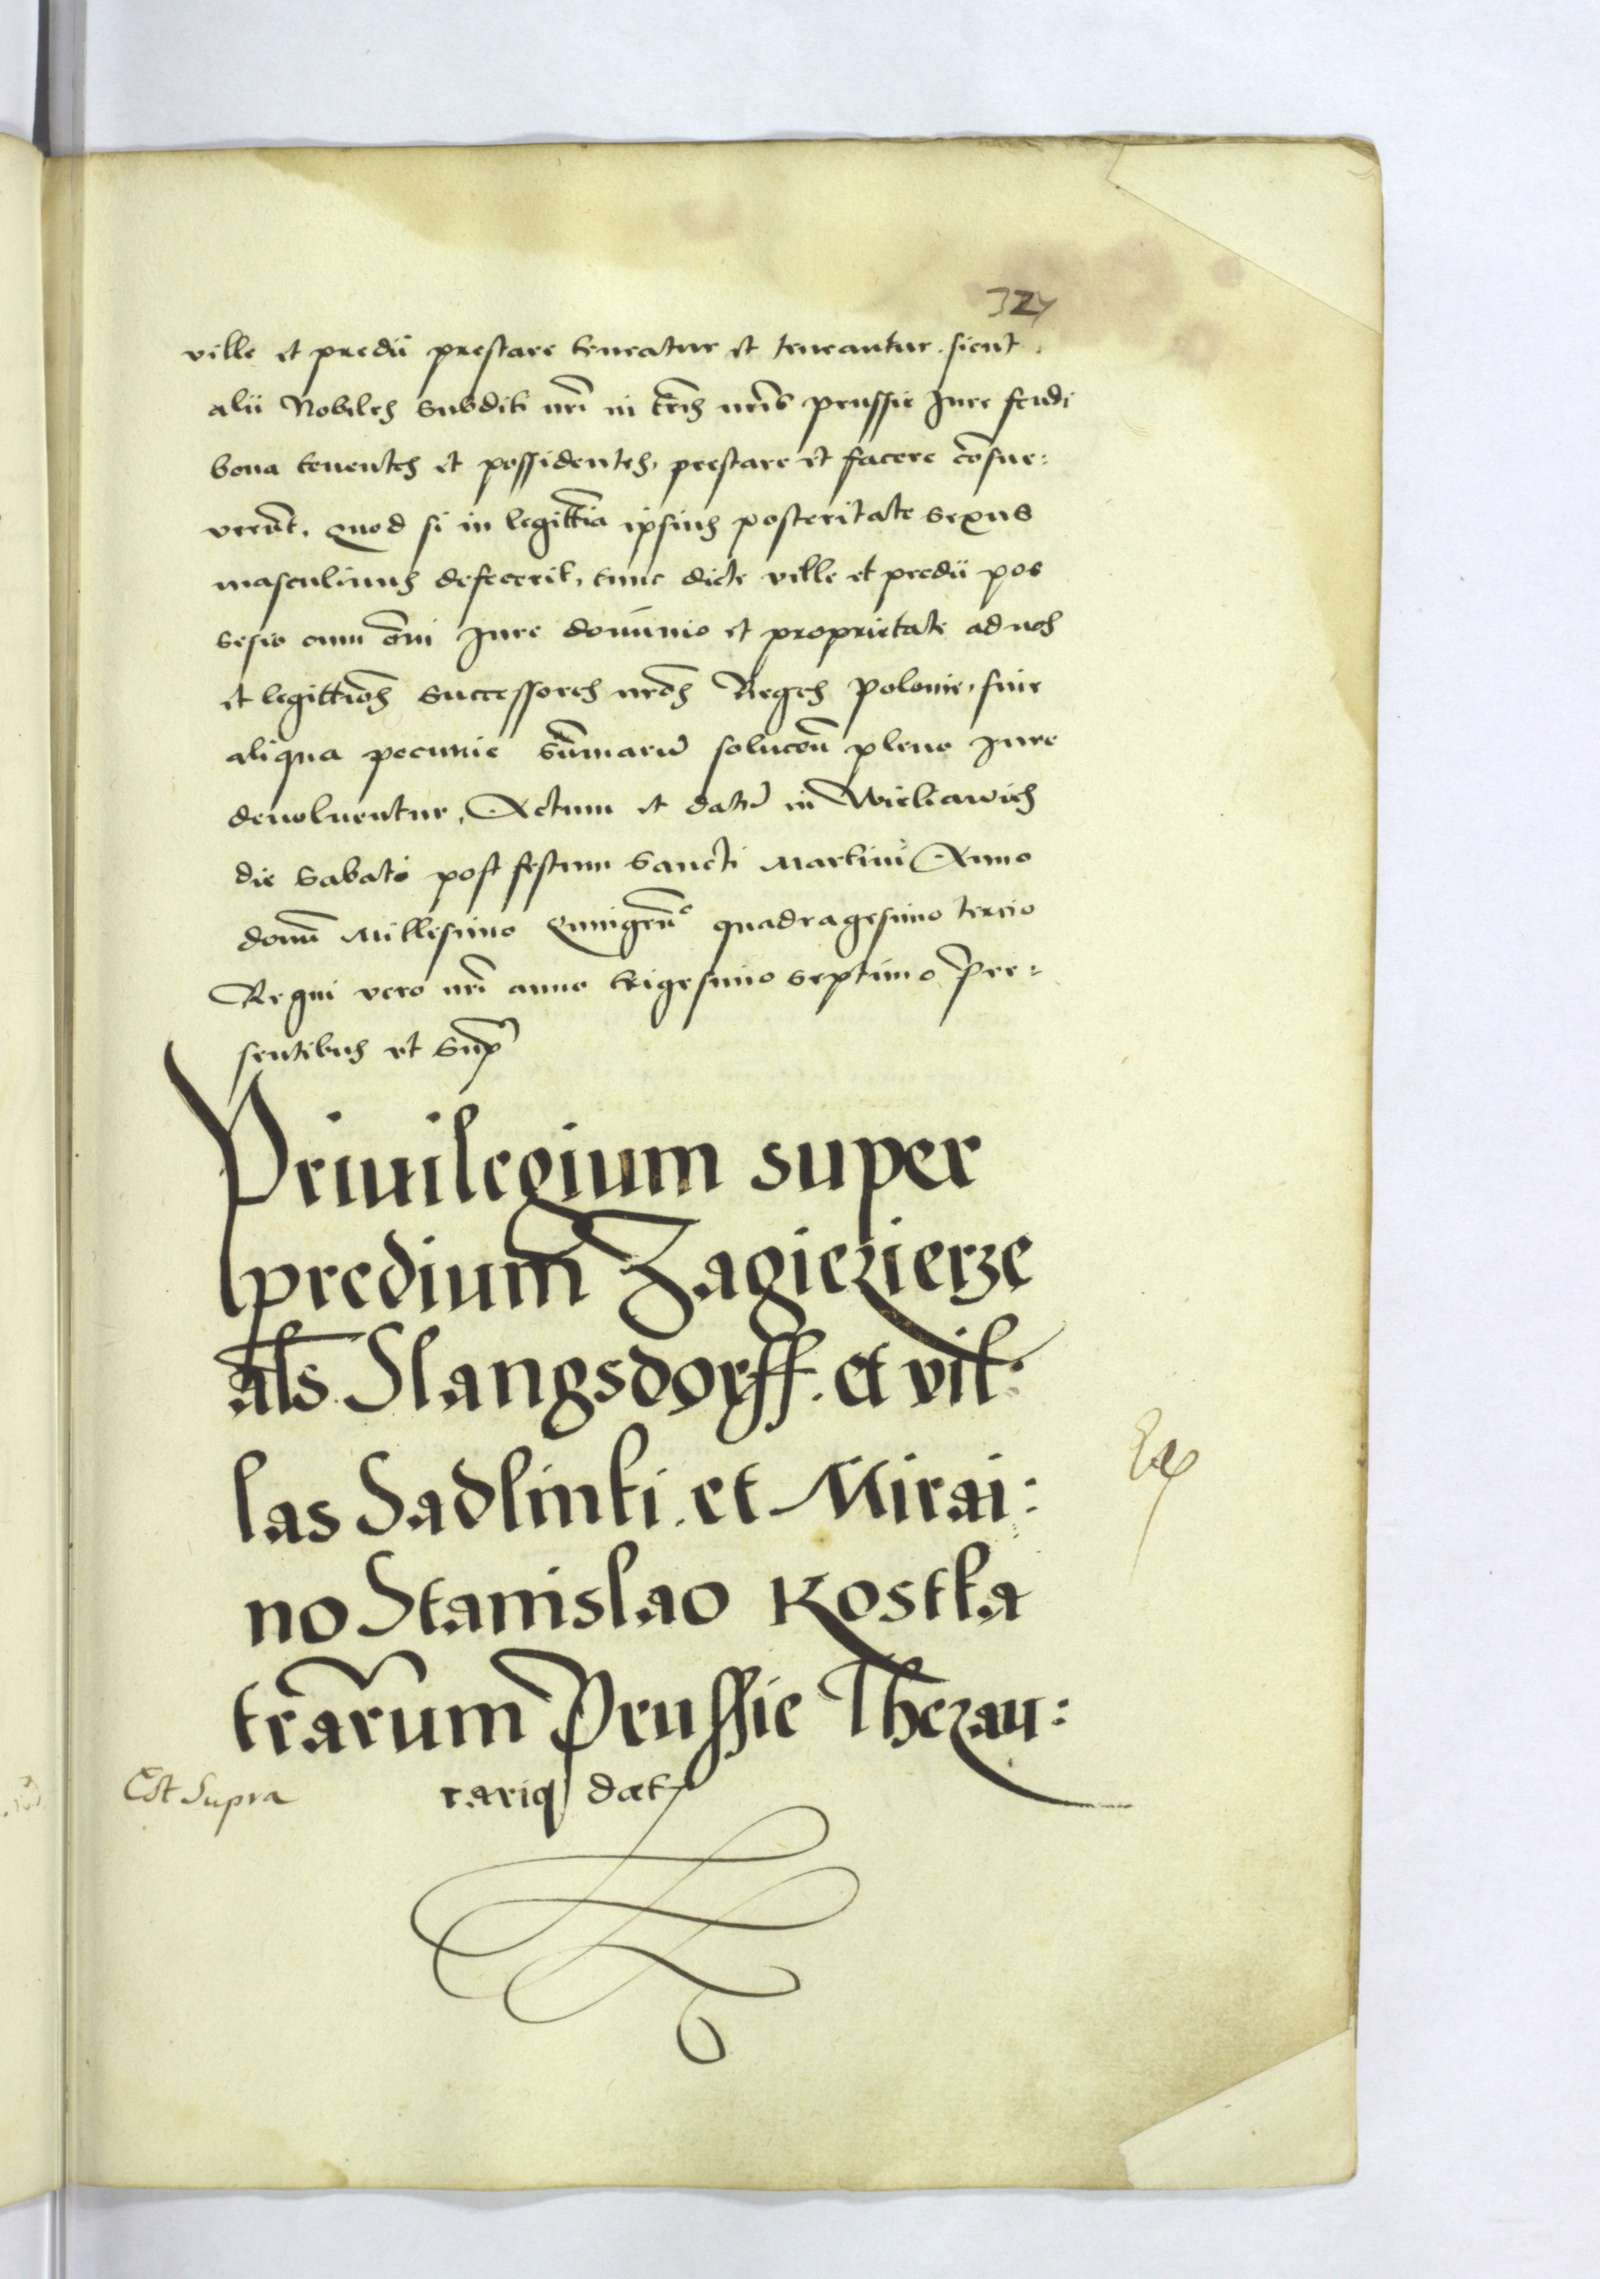 324
ville et predii prestare teneatur et teneantur. sicut
alii Nobiles Subditi nri in tris nris prussie Jure feudi
bona tenentes et possidentes, prestare et facere cosue:
verut. Quod si in legittia ipsius posteritate sexus
masculinus defecerit, tunc dicte ville et predii pos
sesio cum oni Jure dominio et proprietate ad nos
et legittios Successores nros Reges Polonie, sine
aliqua pecunie summaru soluconi pleno Jure
devoluentur, Actum et datu in
die Sabato post festum Sancti Martini Anno
domi Millesimo Quingen quadragesimo tercio
Regni vero nri anno trigesimo septimo Pre:
sentibus et Sup
Priuilegium super
predium Zagiezierze
als Slangsdorff. et vil:
las Sadlinki. et Mirai:
no Stanislao Kostka
trarum Prussie Thezau:
Est Supra rariq dat